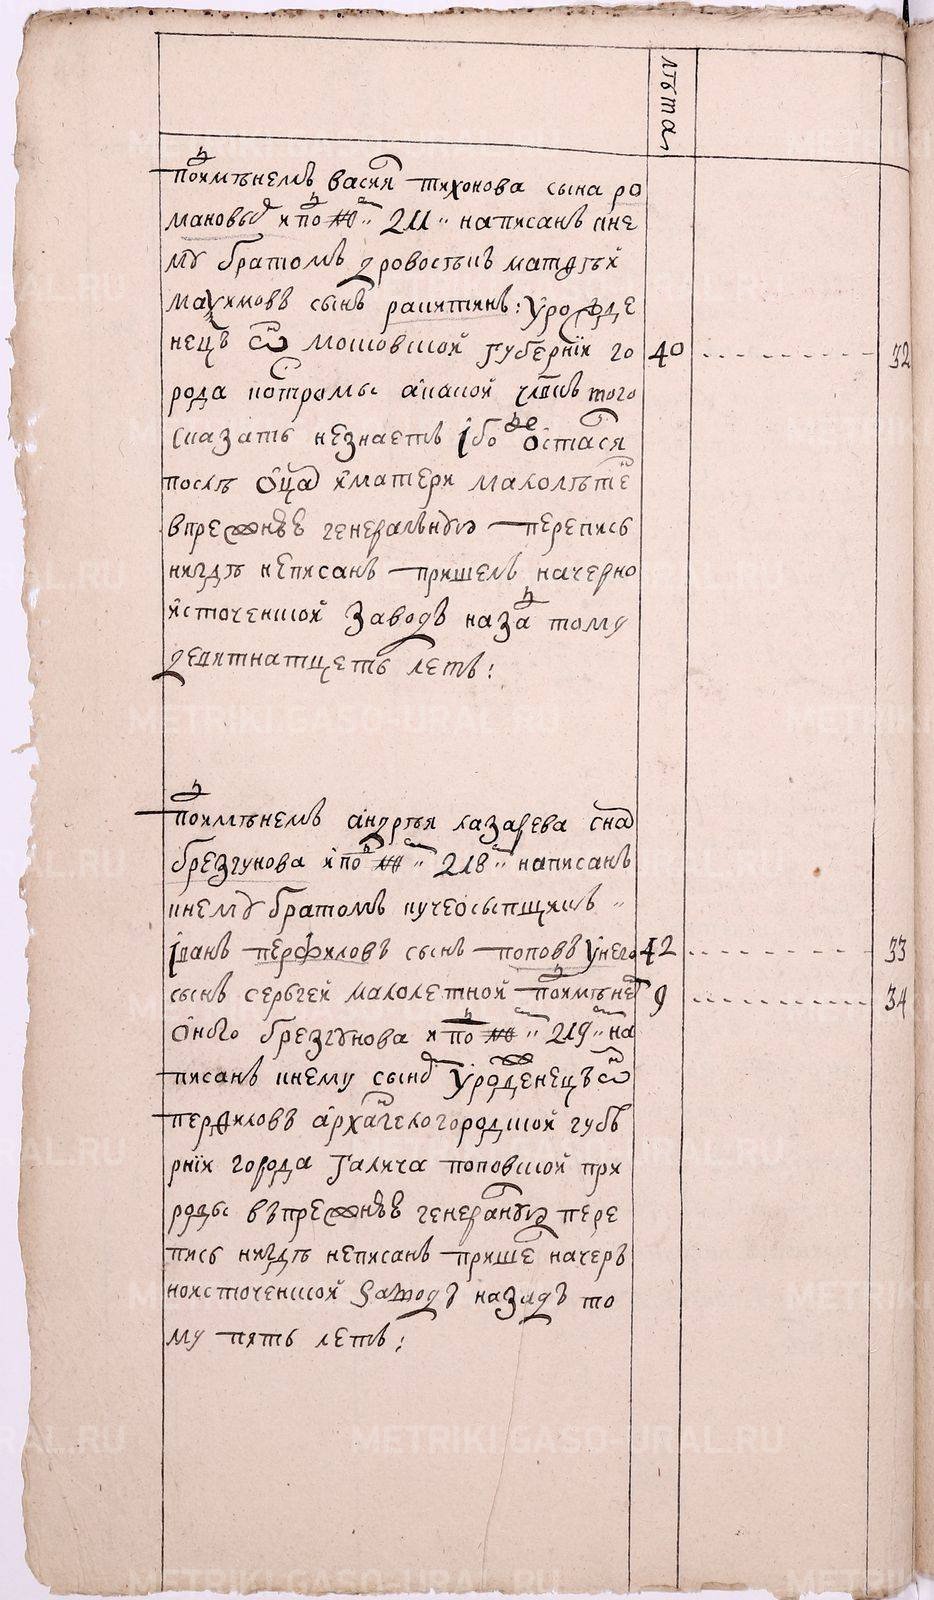 лѣта
подимѣнемъ васил тихонова сына ро
мановых и по № 211 написанъ кне
му братомъ дровосѣкъ матѳѣй
маѯимовъ сынъ ракитинъ: урожде
нецъ ѿ московской губерніи го 40 32
рода костромы а какой члвкъ того
сказать незнаетъ ібо де остася
послѣ оца и матери малолѣтє
впрежнѣѣ генералную перепись
нигдѣ неписанъ пришелъ начерно
источенской заводъ наза тому
девятнатцеть летъ:
андрѣя лазарева сна
брезгунова и по № 218 написанъ
кнему братомъ кучеосыпщикъ
іванъ перфиловъ сынъ поповъ унего 42 33
сынъ сергей малолетной 9 34
оного брезгунова и по № 219 на
писанъ кнему сынъ уроденецъ ѿ
перѳиловъ архагелогородской губе
рніи города галича поповской при
роды въпрежнѣѣ генералную пере
пись нигдѣ неписанъ прише начеръ
ноисточенской заводъ назадъ то
му пять летъ:
METRIKI.GASO-URAL.RU